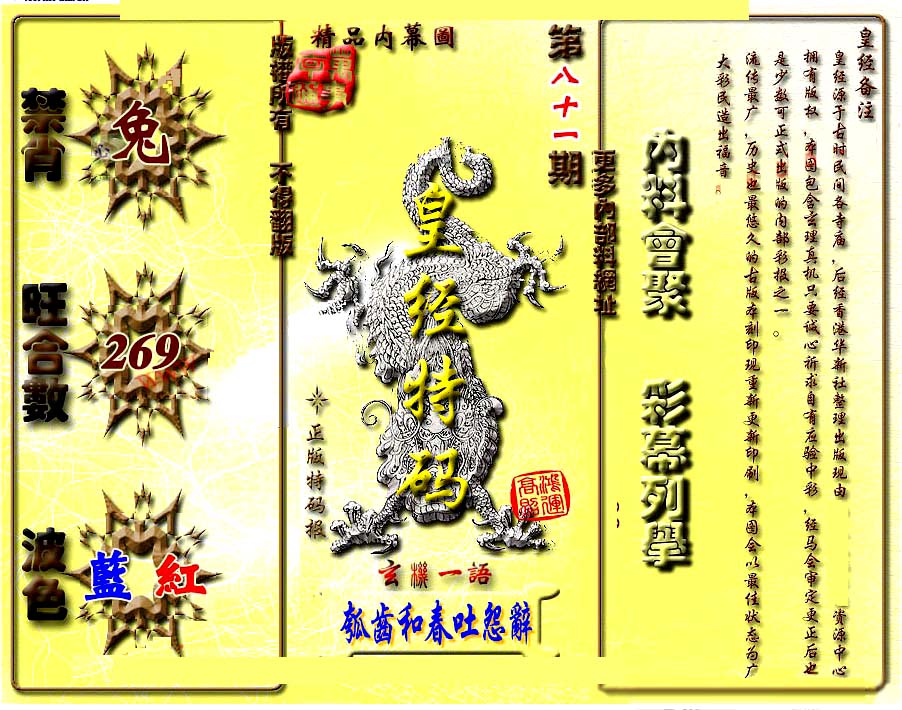 皇经备注
皇经源于古时民间各寺庙，后经香港华新社整理出版现由
资源中心
拥有版权，本图包含玄理真机只要诚心祈求自有应验中彩，经马会审定更正后也
是少数可正式出版的内部彩报之一。
流传最广，历史也最悠久的古版本刻印现重新更新印刷，本图会以最佳状态为广
大彩民造出福音
内料會聚
彩幕列舉
更多內部料網址
第八十一期
精品内幕圖
皇经特码
正版特码报
鴻運
高照
玄機一語
瓠齒和春吐怨辭
版權所有
不得翻版
禁肖
兔
旺合數
269
波色
藍 紅